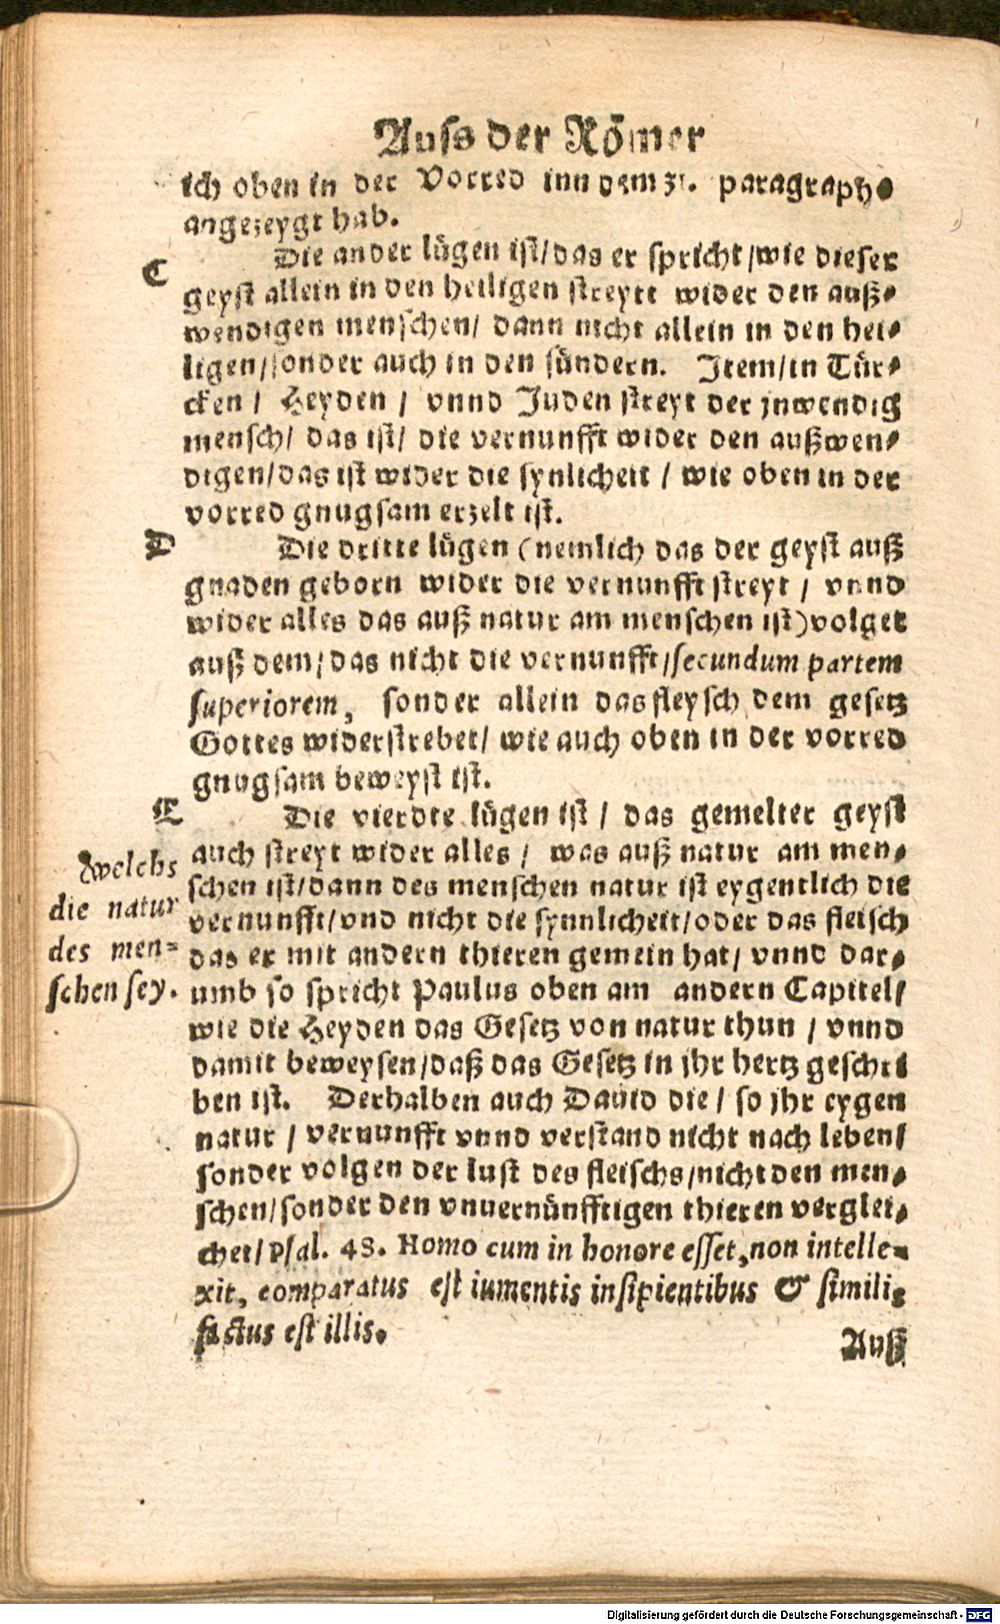 Auss der Römer
ich oben in der Vorred inn dem 31. paragrapho
angezeygt hab.
C
Die ander lügen ist/das er spricht/wie dieser
geyst allein in den heiligen streytt wider den auß-
wendigen menschen/ dann nicht allein in den hei-
ligen/sonder auch in den sündern. Item/in Tür-
cken / Heyden / vnnd Juden streyt der jnwendig
mensch/ das ist/ die vernunfft wider den außwen-
digen/das ist wider die synlicheit / wie oben in der
vorred gnugsam erzelt ist.
D
Die dritte lügen (nemlich das der geyst auß
gnaden geborn wider die vernunfft streyt / vnnd
wider alles das auß natur am menschen ist) volget
auß dem/das nicht die vernunfft/secundum partem
superiorem, sonder allein das fleysch dem gesetz
Gottes widerstrebet/ wie auch oben in der vorred
gnugsam beweyst ist.
E
Die vierdte lügen ist / das gemelter geyst
auch streyt wider alles / was auß natur am men-
schen ist/dann des menschen natur ist eygentlich die
vernunfft/vnd nicht die synnlicheit/oder das fleisch
das er mit andern thieren gemein hat/ vnnd dar-
umb so spricht Paulus oben am andern Capitel/
wie die Heyden das Gesetz von natur thun / vnnd
damit beweysen/daß das Gesetz in jhr hertz geschri
ben ist. Derhalben auch Dauid die / so jhr eygen
natur / vernunfft vnnd verstand nicht nach leben/
sonder volgen der lust des fleischs/nicht den men-
schen/sonder den vnuernünfftigen thieren verglei-
chet/Psal. 48. Homo cum in honore esset, non intelle-
xit, comparatus est iumentis insipientibus & simili-
factus est illis.
Auß
Welchs
die natur
des men-
schen sey.
Digitalisierung gefördert durch die Deutsche Forschungsgemeinschaft - DFG